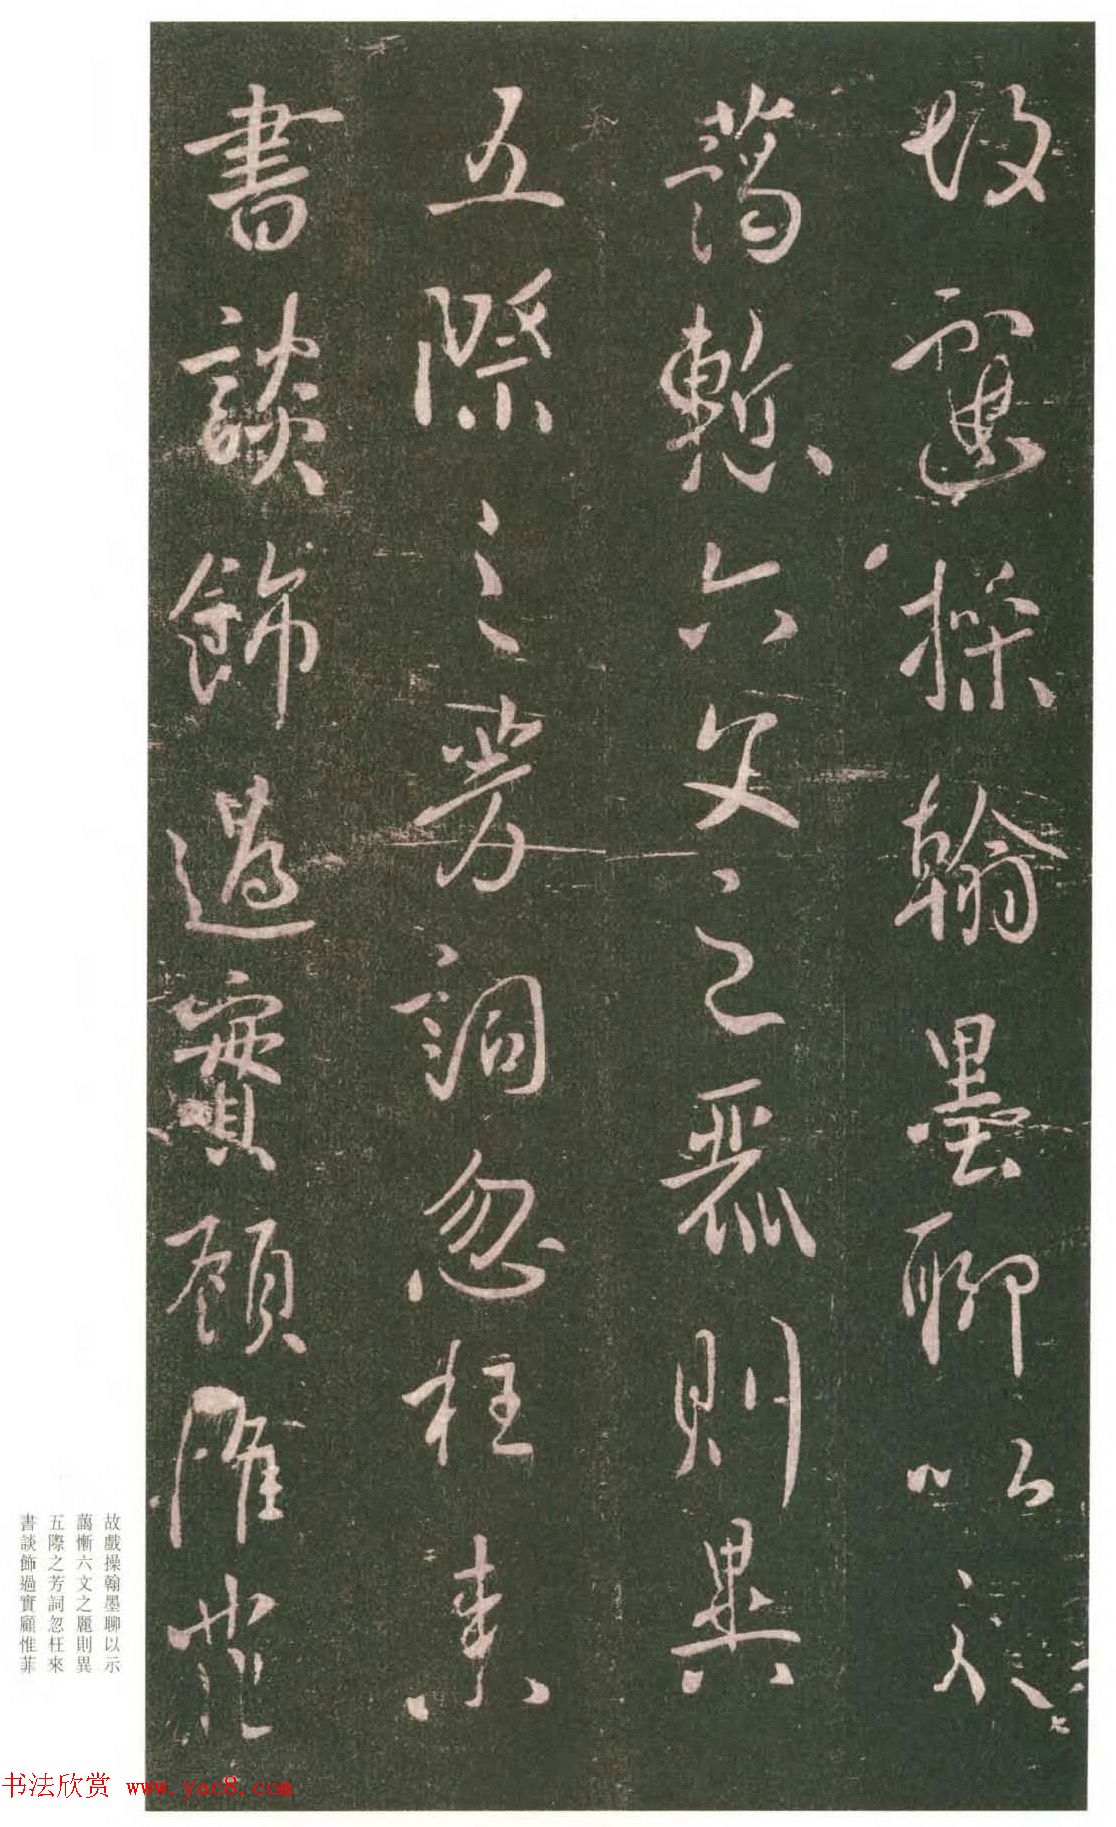 故戲操翰墨聊以示
藹慚六文之麗則異
五際之芳詞忽枉來
書談飾過實顧惟菲
故戲操翰墨聊以示
藹慚六文之麗則異
五際之芳詞忽枉來
書談飾過實顧惟菲
书法欣赏 www.yac8.com